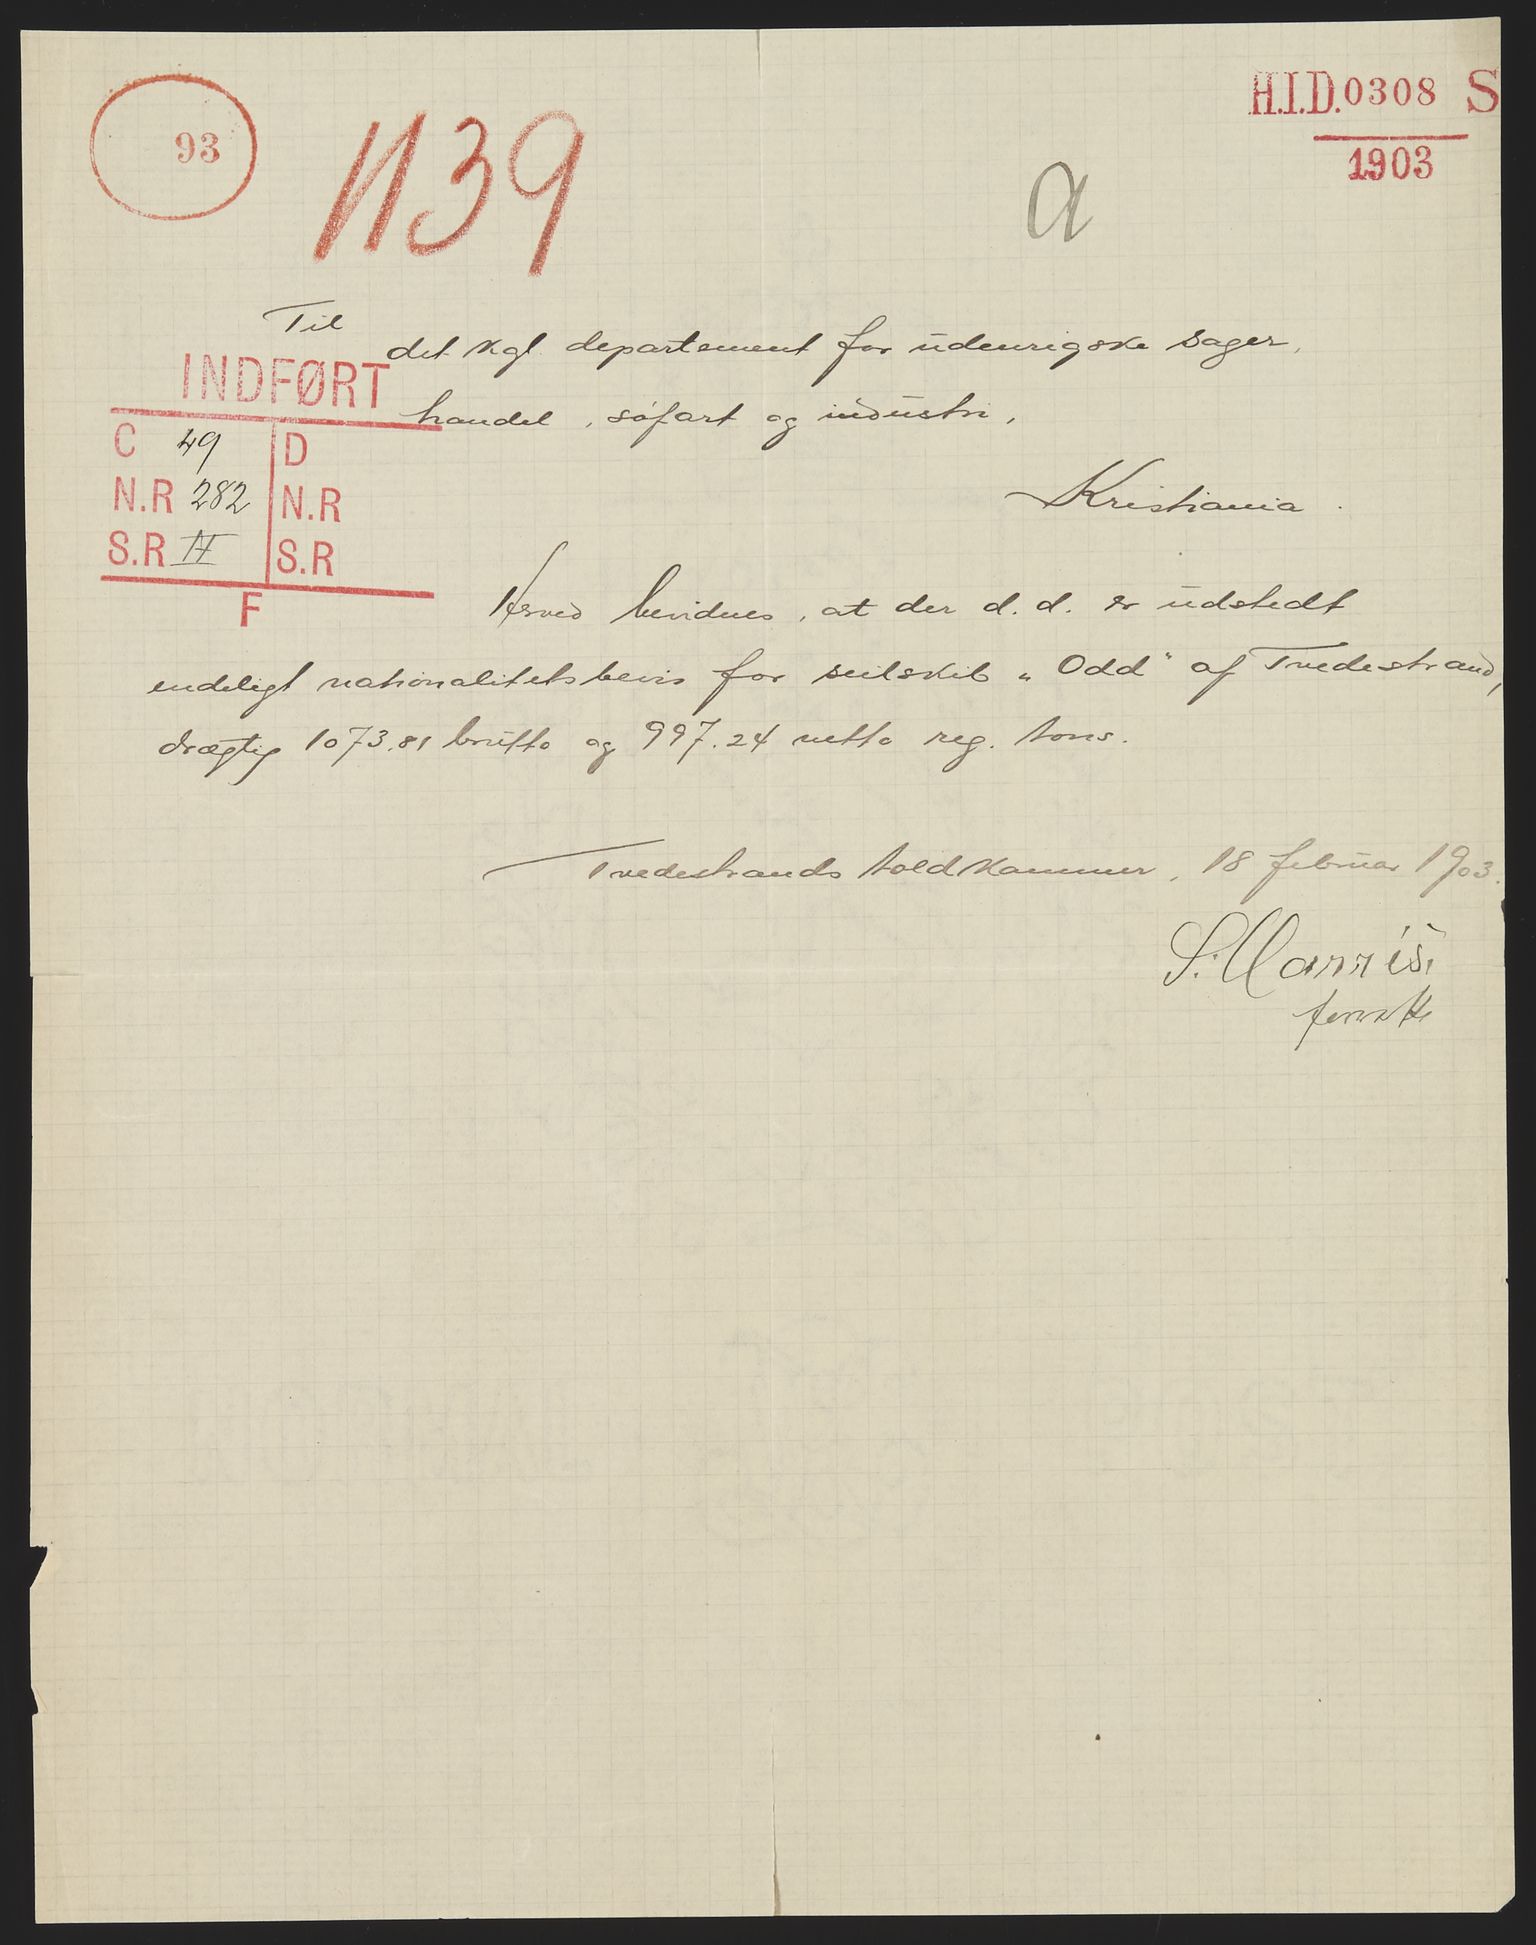 93
1139
a
H.I.D.0308 S
1903
Til
det kgl. departement for udenrigske sager,
handel, søfart og industri,
Kristiania.
INDFØRT
C 49 D
N.R 282 N.R
S.R II S.R
F
Herved bevidnes, at der d. d. er udstedt
endeligt nationalitetsbevis for seilskib „Odd" af Tvedestrand,
drægtig 1073.81 brutto og 997.24 netto reg. tons.
Tvedestrands toldkammer, 18 februar 1903.
S.